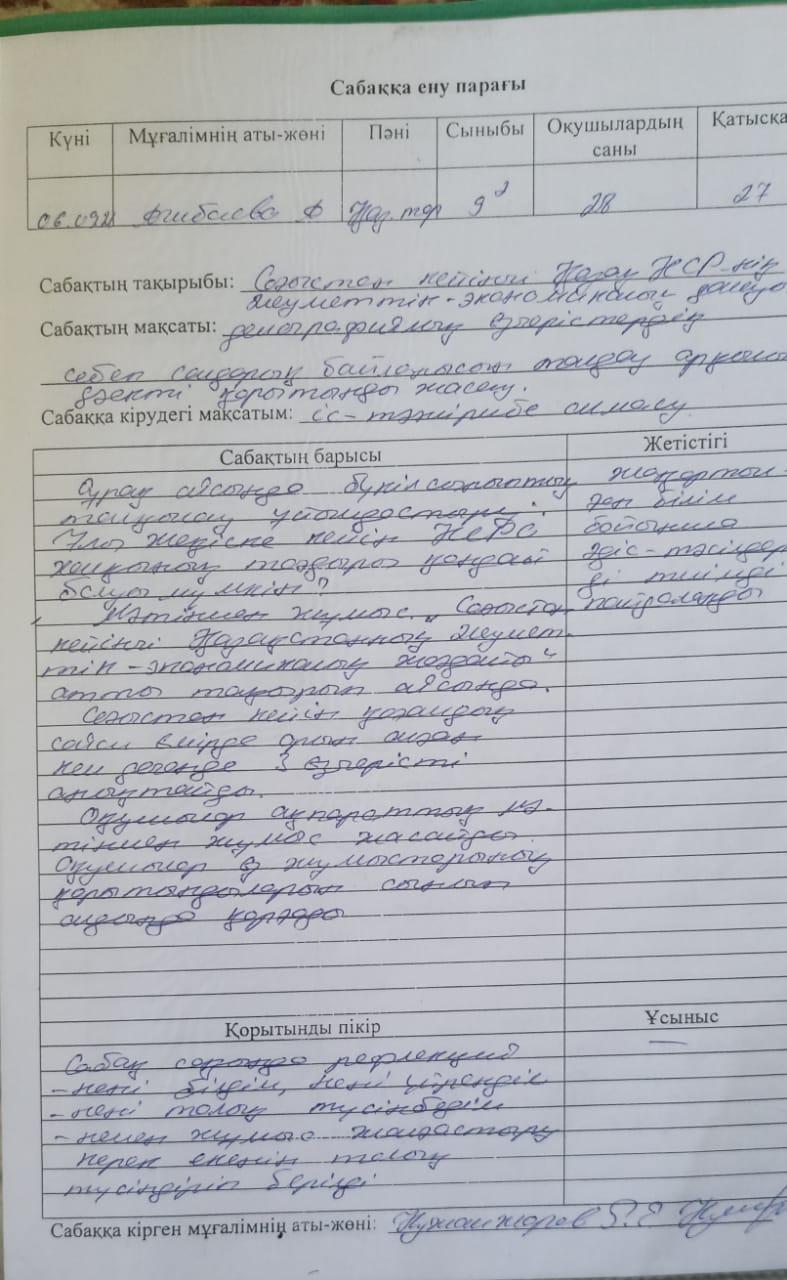 Сабаққа ену парағы
Күні Мұғалімнің аты-жөні Пәні Сыныбы Оқушылардың саны Қатысқа
06.09 Агибаева Қаз.тар 9² 28 27
Сабақтың тақырыбы: Соғыстан кейінгі Қазақ КСР-нің
әлеуметтік-экономикалық дамуы
Сабақтың мақсаты: демографиялық өзгерістердің
себеп салдарлық байланысын талдау арқылы
өзекті қорытынды жасау.
Сабаққа кірудегі мақсатым: іс-тәжірибе алмасу
Сабақтың барысы Жетістігі
Сұрақ аясында бүкілсыныптық
талқылау ұйымдастыру:
Ұлы жеңіске кейін КСРО
халқының тағдыры қандай
болуы мүмкін?
Мәтінмен жұмыс. „Соғыстан
кейінгі Қазақстанның әлеумет-
тік-экономикалық жағдайы"
атты тақырып аясында.
Соғыстан кейін қоғамдық
саяси өмірде орын алған
кем дегенде 3 өзгерісті
анықтайды.
Оқушылар ақпараттық мә-
тінмен жұмыс жасайды.
Оқушылар өз жұмыстарының
қорытындыларын сынып
алдында қорғады
жаңартыл-
ған білім
бойынша
әдіс-тәсілдер
ді тиімді
пайдаланды
Қорытынды пікір Ұсыныс
Сабақ соңында рефлекция —
- нені білдім, нені үйрендім
- нені толық түсінбедім
- немен жұмыс жалғастыру
керек екенін толық
түсіндіріп берді
Сабаққа кірген мұғалімнің аты-жөні: